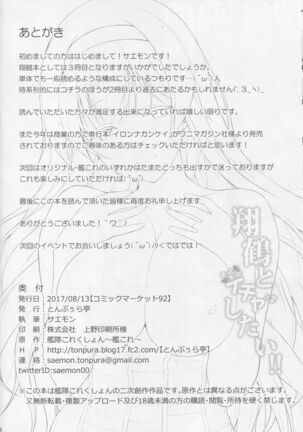 あとがき
初めましての方ははじめまして！サエモンです！
翔鶴本としては3冊目となりますがいかがでしたでしょうか。
単体でも一応読めるような構成にしているつもりです…(´ω`)人
時系列的にはコチラのほうが2冊目より過去にあたるかもしれません(´.3_ヽ)_
読んでいただいた方々が満足する出来になっていれば嬉しい限りです。
また今年は商業の方で単行本『イロンナカンケイ』がワニマガジン社様より発売
されておりますのでご興味のある方はチェックいただければと思います！
次回はオリジナル・艦これのいずれかはたまたどっちも出すかで迷っておりますが
これも楽しみにしていただければ(´ω`)人
最後にこの本を読んで頂いた皆様に再度お礼申し上げます。
ありがとうございました！｀ワ´)
次回のイベントでお会いしましょう(´ω`)ノくではでは！
翔鶴と
イチャイチャ
したい!!
奥付
発行日：2017/08/13【コミックマーケット92】
発行：とんぷぅら亭
執筆：サエモン
印刷：株式会社 上野印刷所様
原作：艦隊これくしょん～艦これ～
HP：http://tonpura.blog17.fc2.com/【とんぷぅら亭】
連絡：saemon.tonpura@gmail.com
twitterID：saemon00
※この本は艦隊これくしょんの二次創作作品です。原作とは異なる点がございます。
又無断転載・複製アップロード及び18歳未満の方の購読・閲覧・所持を硬く禁じます。